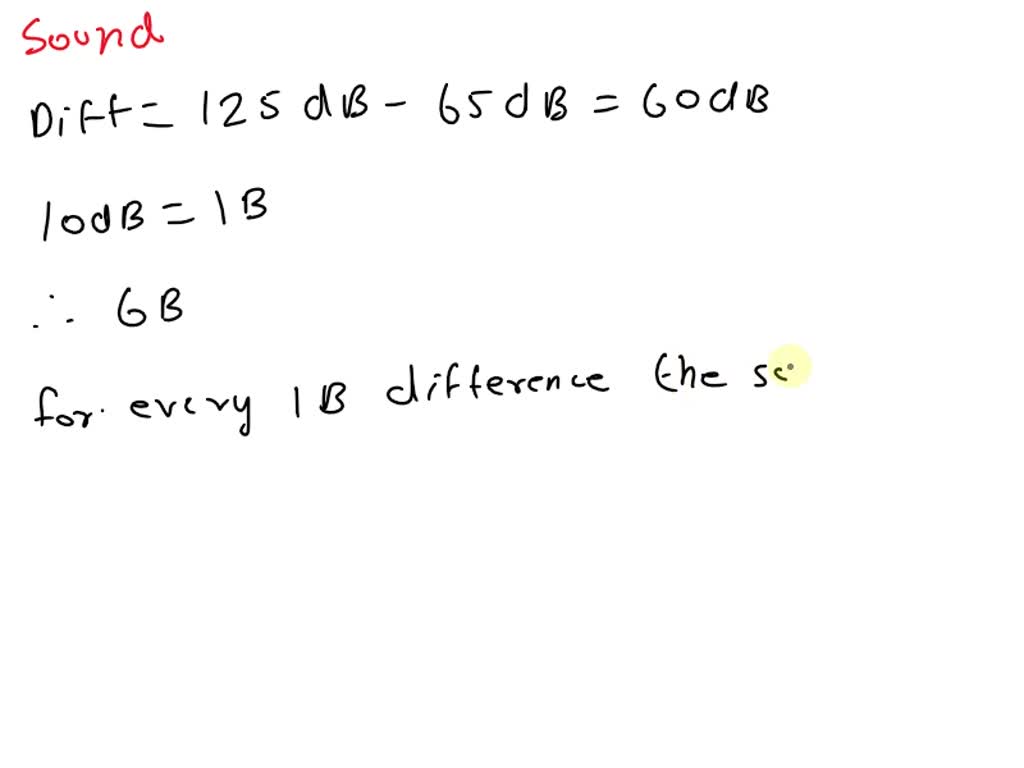 Sound
Diff = 125 dB - 65 dB = 60 dB
10 dB = 1 B
∴ 6 B
for every 1 B difference the